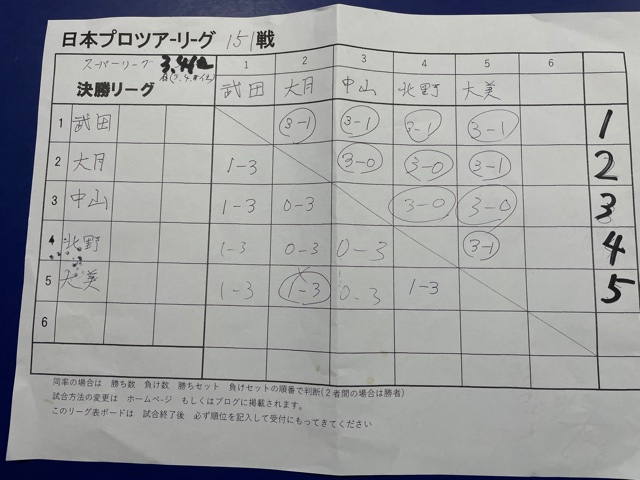 日本プロツアーリーグ 151戦
スーパーリーグ 3.4位
決勝リーグ
1 2 3 4 5 6
武田 大月 中山 北野 大美
1 武田 3-1 3-1 3-1 3-1 1
2 大月 1-3 3-0 3-0 3-1 2
3 中山 1-3 0-3 3-0 3-0 3
4 北野 1-3 0-3 0-3 3-1 4
5 大美 1-3 1-3 0-3 1-3 5
6
同率の場合は 勝ち数 負け数 勝ちセット 負けセットの順番で判断(2者間の場合は勝者)
試合方法の変更は ホームページ もしくはブログに掲載されます。
このリーグ表ボードは 試合終了後 必ず順位を記入して受付にもってきてください